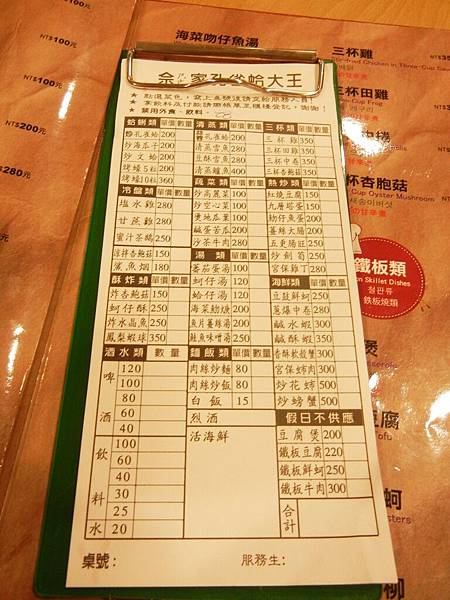 海菜吻仔魚湯
NT$100元
NT$100元
NT$200元
$280元
家孔雀蛤大王
★ 點選菜色，填上桌號後請交給服務人員！
★ 拿飲料及付款請開帳單至櫃檯登記，謝謝！
★ 禁用外食、飲料。
蛤蜊類 單價 數量
炒孔雀蛤 200
炒海瓜子 200
炒文蛤 200
烤蠔5粒 200
烤蠔10粒 360
冷盤類 單價 數量
塩水雞 280
甘蔗雞 280
蜜汁茶鵝 250
涼拌杏鮑菇 150
鯊魚烟 180
酥炸類 單價 數量
炸杏鮑菇 150
蚵仔酥 250
炸水晶魚 250
鳳梨蝦球 350
酒水類 數量
啤酒
120
100
80
60
40
飲料
100
60
40
30
25
水 20
清蒸類 單價 數量
孔雀蛤 200
清蒸雪魚 280
豆酥雪魚 280
清蒸鱸魚 400
蔬菜類 單價 數量
炒海菜 100
炒空心菜 100
燙地瓜葉 100
鹹蛋苦瓜 200
沙茶牛肉 280
湯類 單價 數量
蕃茄蛋湯 100
蚵仔湯 120
蛤仔湯 120
海菜魩焿 200
魚片薑絲湯 200
鮭魚味噌湯 250
麵飯類 單價 數量
肉絲炒麵 80
肉絲炒飯 80
白飯 15
烈酒
活海鮮
三杯類 單價 數量
三杯雞 350
三杯田雞 350
三杯中卷 350
三杯杏鮑菇 350
熱炒類 單價 數量
紅燒豆腐 150
九層塔蛋 150
魩仔魚蛋 200
薑絲大腸 200
五更腸旺 250
炒劍筍 250
宮保雞丁 280
海鮮類 單價 數量
豆鼓鮮蚵 250
蔥爆中卷 280
鹹水蝦 300
鹹酥蝦 350
香酥軟殼蟹 300
宮保蚵肉 300
炒花蚵 500
炒螃蟹 500
假日不供應
豆腐煲 200
鐵板豆腐 220
鐵板鮮蚵 250
鐵板牛肉 300
合計
桌號：
服務生：
三杯雞
Stir-fried Chicken in Three-Cup Sauce
三杯田雞
三杯杏胞菇
Cup Oyster Mushroom
鐵板類
Skillet Dishes
철판류
鉄板焼類
煲
豆腐
蚵
柳